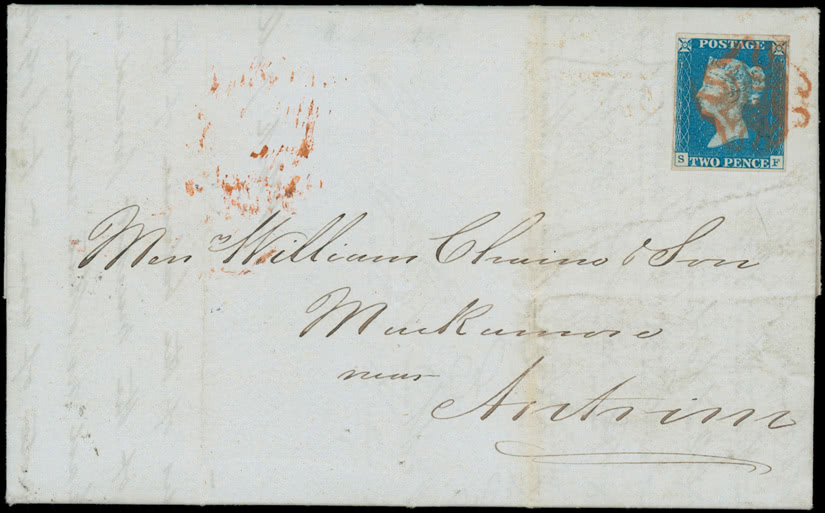 POSTAGE
S TWO PENCE F
Messrs William Chaine & Son
Muckamore
near
Antrim